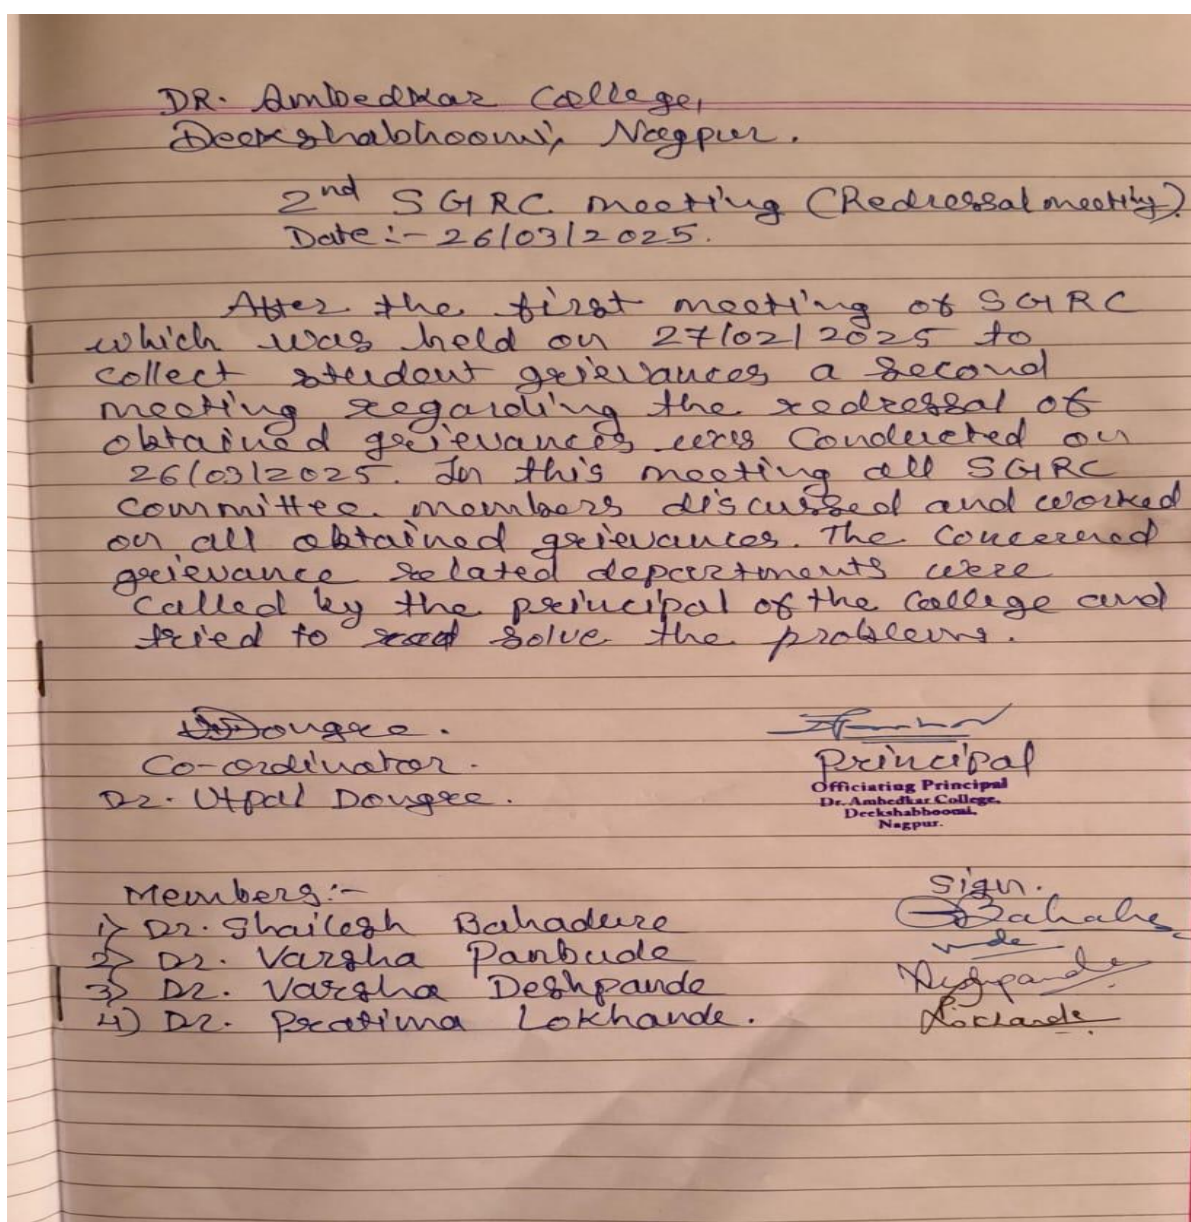 DR. Ambedkar College,
Deekshabhoomi, Nagpur.
2nd SGRC meeting (Redressal meeting)
Date :- 26/03/2025.
After the first meeting of SGRC
which was held on 27/02/2025 to
collect student grievances a second
meeting regarding the redressal of
obtained grievances was Conducted on
26/03/2025. In this meeting all SGRC
Committee members discussed and worked
on all obtained grievances. The Concerned
grievance related departments were
Called by the principal of the College and
tried to solve the problems.
Dongre.
Co-ordinator.
Dr. Utpal Dongre.
Principal
Officiating Principal
Dr. Ambedkar College,
Deekshabhoomi,
Nagpur.
Members:- Sign.
1) Dr. Shailesh Bahadure
2) Dr. Varsha Panbude
3) Dr. Varsha Deshpande Deshpande
4) Dr. Pratima Lokhande. Lokhande